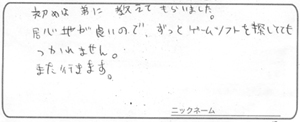 初めは弟に教えてもらいました。
居心地が良いので、ずっとゲームソフトを探してても
つかれません。
また行きます。
ニックネーム